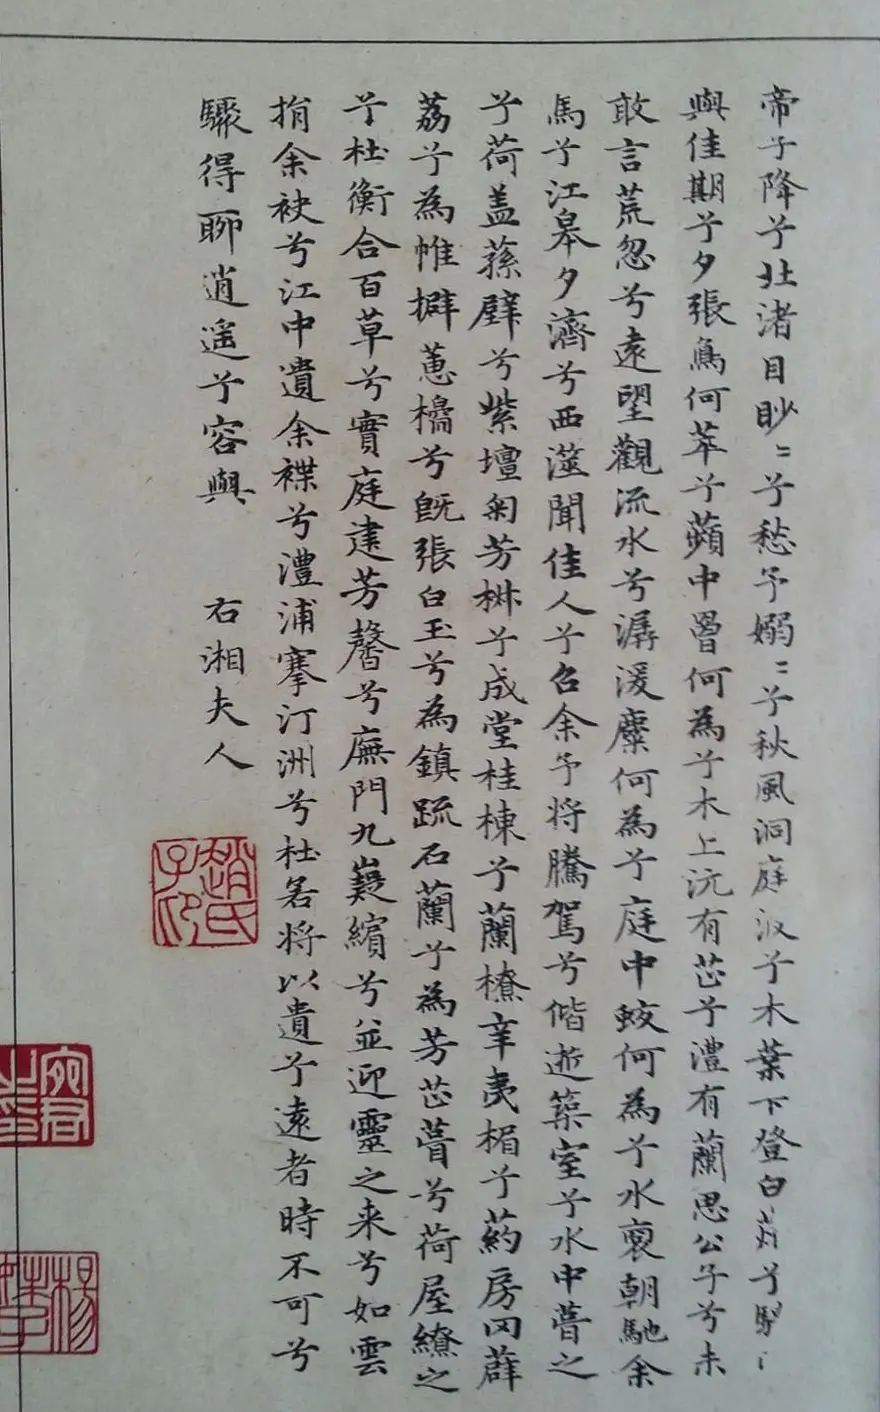 帝子降兮北渚目眇〻兮愁予嫋〻兮秋風洞庭波兮木葉下登白薠兮騁
與佳期兮夕張鳥何萃兮蘋中罾何為兮木上沅有芷兮澧有蘭思公子兮未
敢言荒忽兮遠望觀流水兮潺湲麋何為兮庭中蛟何為兮水裔朝馳余
馬兮江皋夕濟兮西澨聞佳人兮召余予将騰駕兮偕逝築室兮水中葺之
兮荷盖蓀壁兮紫壇匊芳椒兮成堂桂棟兮蘭橑辛夷楣兮葯房罔薜
荔兮為帷擗蕙櫋兮既張白玉兮為鎮疏石蘭兮為芳芷葺兮荷屋繚之
兮杜衡合百草兮實庭建芳馨兮廡門九嶷繽兮並迎靈之来兮如雲
捐余袂兮江中遺余褋兮澧浦搴汀洲兮杜若将以遺兮遠者時不可兮
驟得聊逍遥兮容與 右湘夫人
趙氏子卬